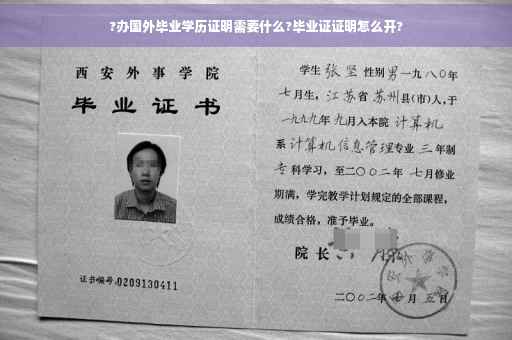 ?办国外毕业学历证明需要什么?毕业证证明怎么开?
西安外事学院
毕业证书
证书编号:0209130411
学生张坚性别男一九八〇年
七月生,江苏省苏州县(市)人,于
一九九九年九月入本院计算机
系计算机信息管理专业三年制
专科学习,至二〇〇二年七月修业
期满,学完教学计划规定的全部课程,
成绩合格,准予毕业。
院长
二〇〇二年 月五日